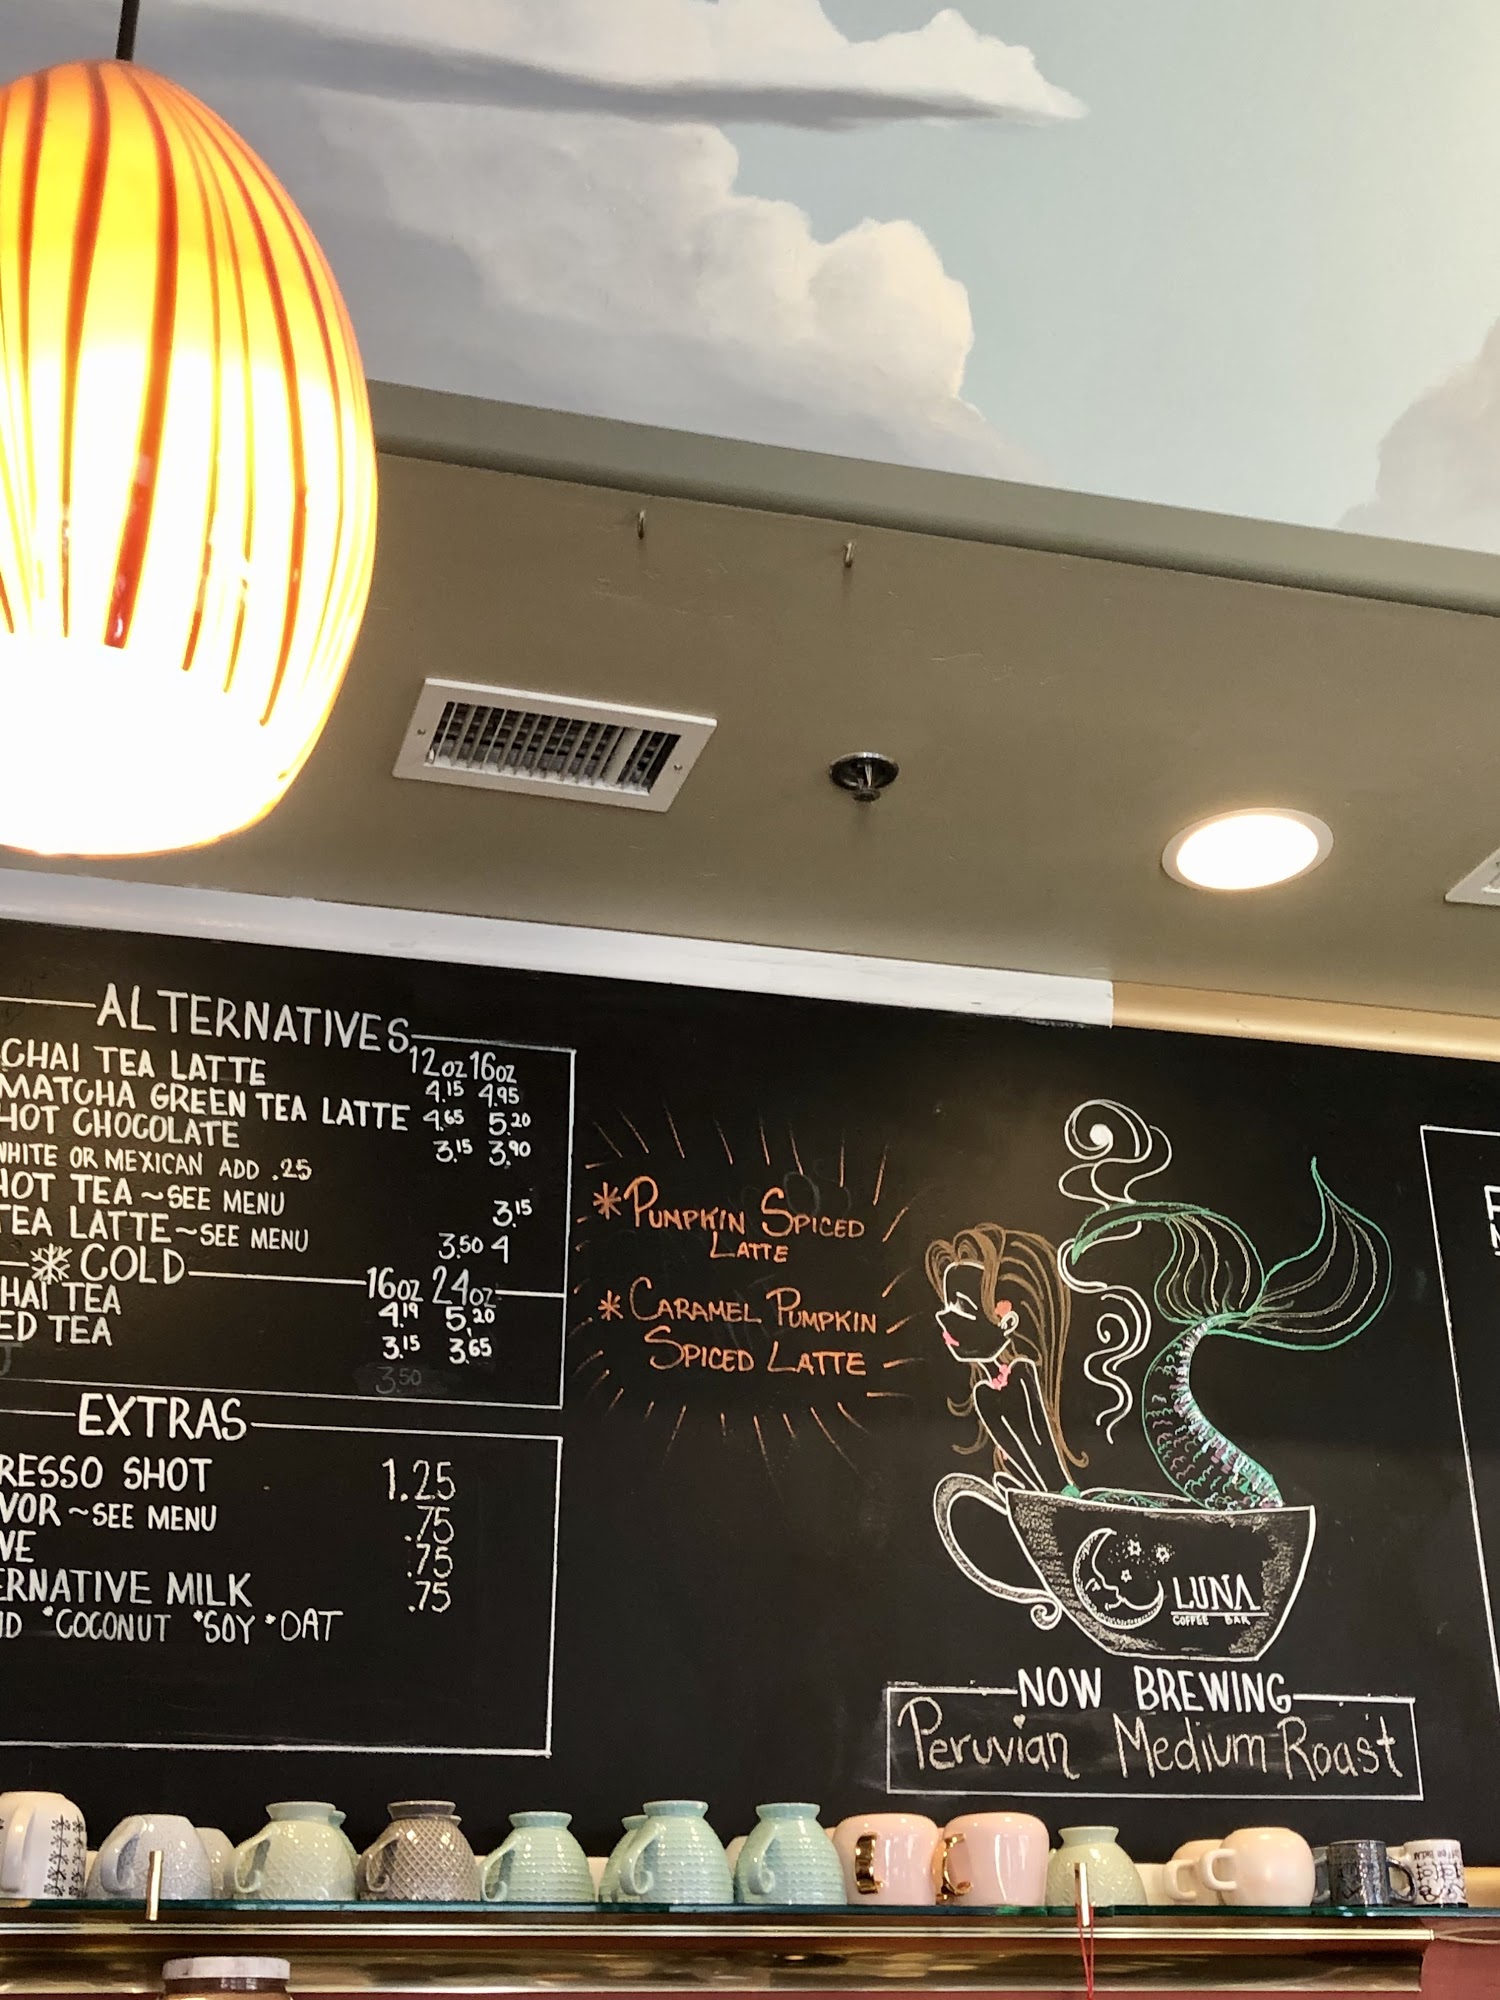 ALTERNATIVES
12oz 16oz
CHAI TEA LATTE 4.15 4.95
MATCHA GREEN TEA LATTE 4.65 5.20
HOT CHOCOLATE 3.15 3.90
WHITE OR MEXICAN ADD .25
HOT TEA ~ SEE MENU 3.15
TEA LATTE ~ SEE MENU 3.50 4
COLD 16oz 24oz
HAI TEA 4.19 5.20
ED TEA 3.15 3.65
3.50
EXTRAS
RESSO SHOT 1.25
VOR ~ SEE MENU .75
VE .75
ERNATIVE MILK .75
*COCONUT *SOY *OAT
* PUMPKIN SPICED
LATTE
* CARAMEL PUMPKIN
SPICED LATTE
LUNA
COFFEE BAR
NOW BREWING
Peruvian Medium Roast